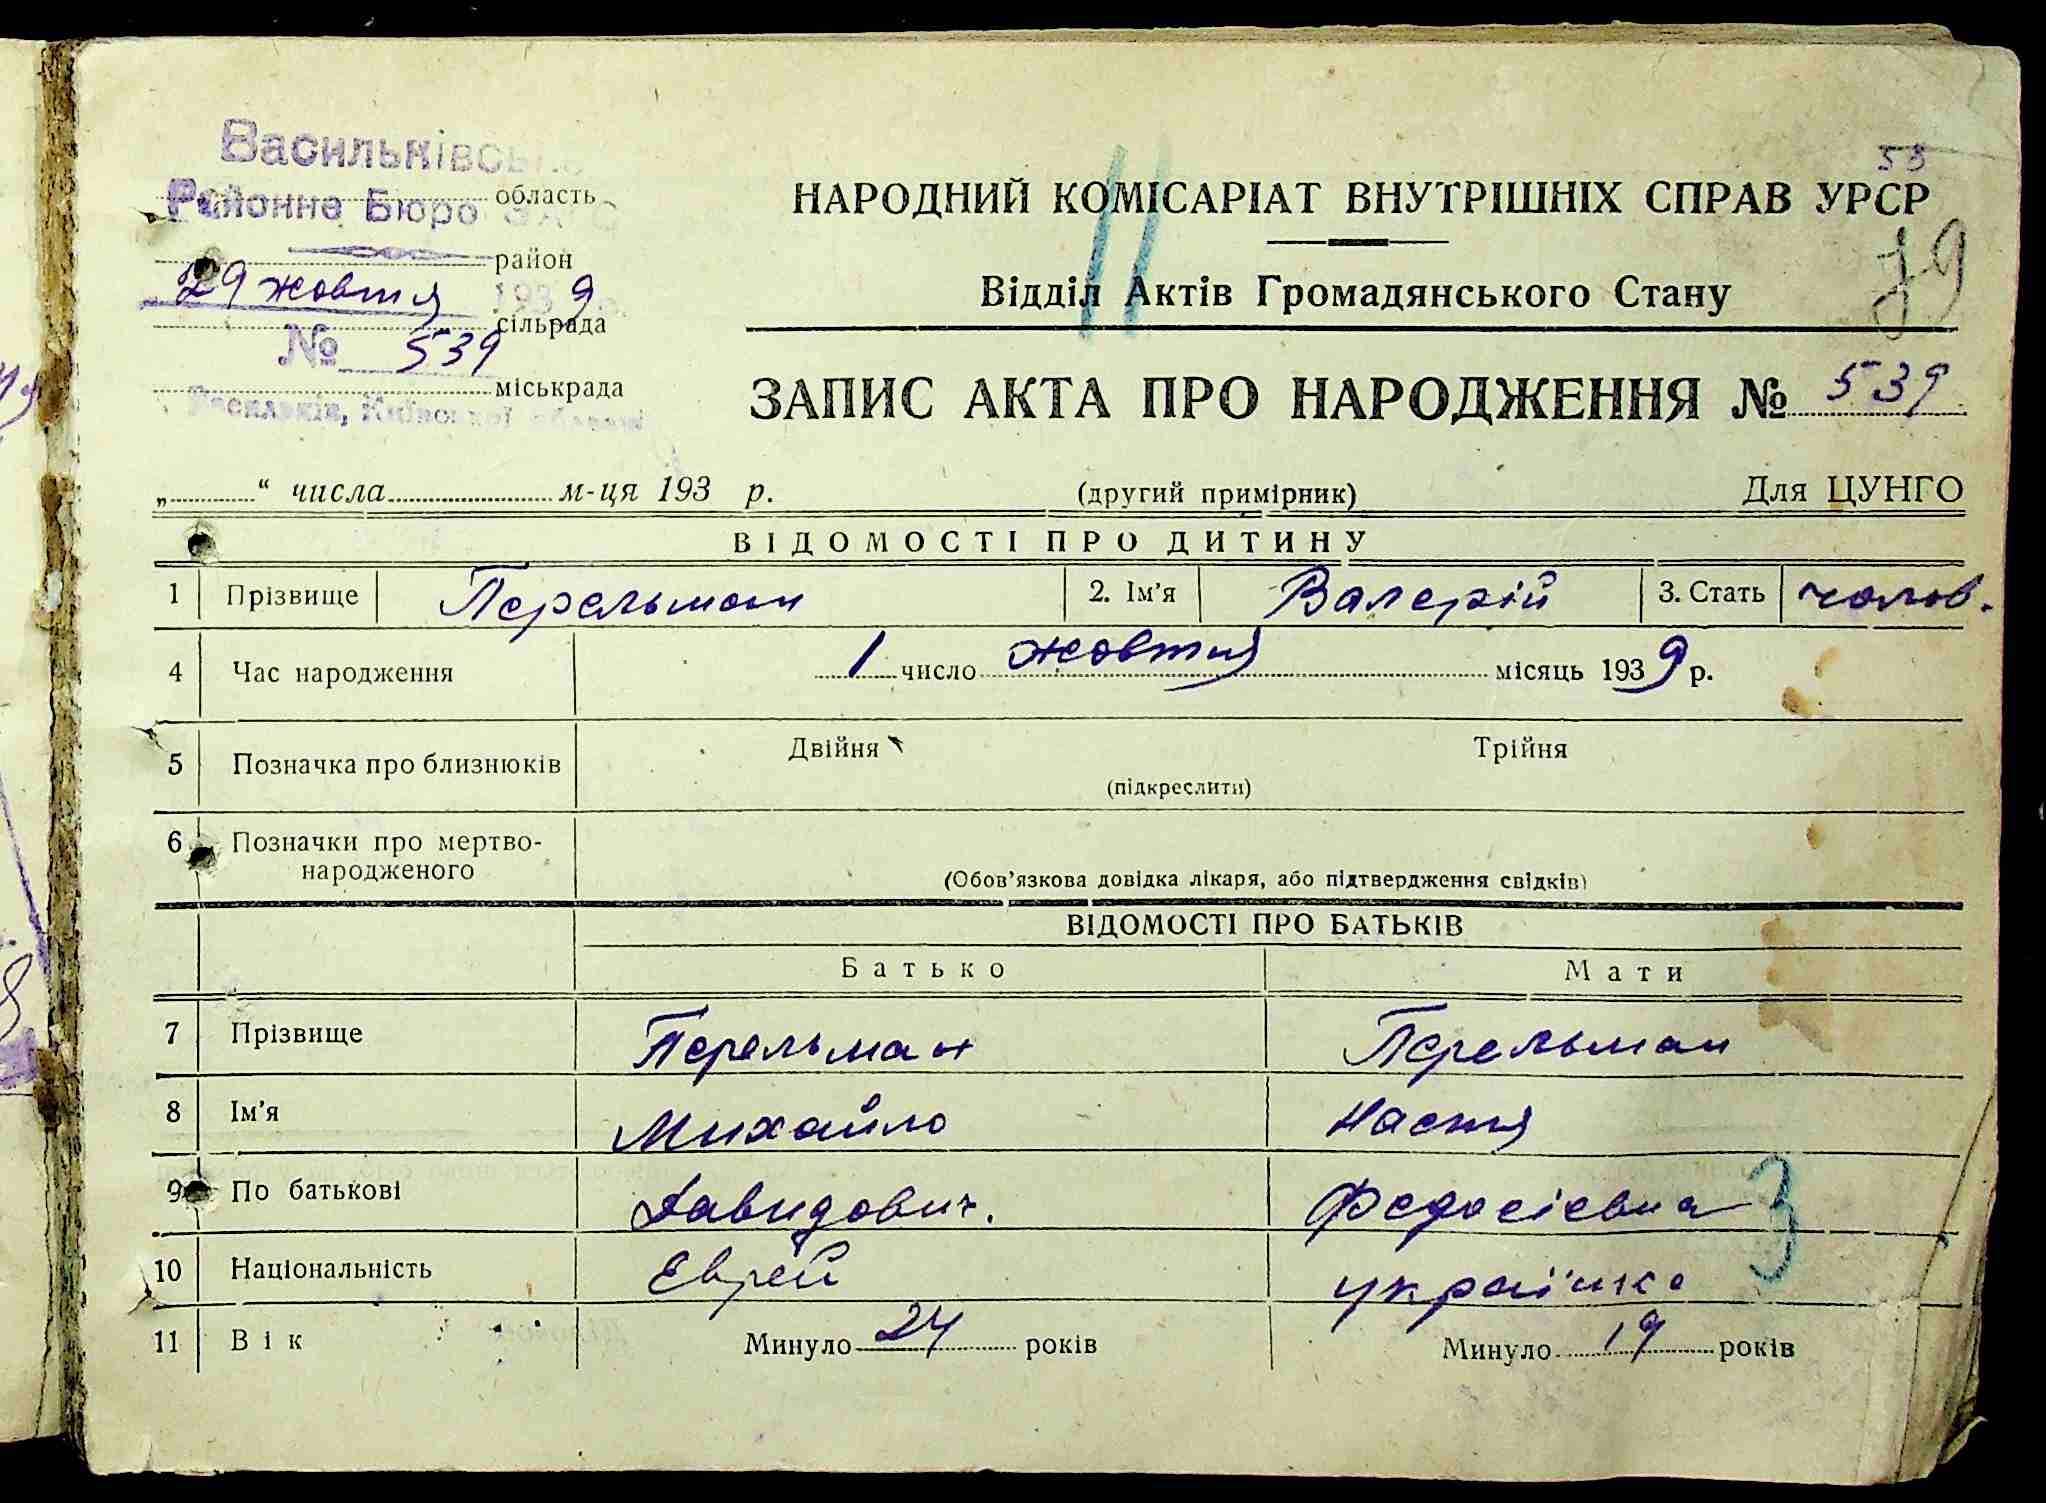 Васильківське
Районне Бюро ЗАГС
область
район
29 жовтня 1939 р.
сільрада
№ 539
міськрада
Васильків, Київської області
53
НАРОДНИЙ КОМІСАРІАТ ВНУТРІШНІХ СПРАВ УРСР
11
Відділ Актів Громадянського Стану
ЗАПИС АКТА ПРО НАРОДЖЕННЯ № 539
„ “ числа м-ця 193 р. (другий примірник) Для ЦУНГО
ВІДОМОСТІ ПРО ДИТИНУ
1 Прізвище Перельман 2. Ім'я Валерій 3. Стать чолов.
4 Час народження 1 число жовтня місяць 1939 р.
5 Позначка про близнюків Двійня Трійня
(підкреслити)
6 Позначки про мертво-
народженого
(Обов'язкова довідка лікаря, або підтвердження свідків)
ВІДОМОСТІ ПРО БАТЬКІВ
Батько Мати
7 Прізвище Перельман Перельман
8 Ім'я Михайло Настя
9 По батькові Давидович. Федосієвна
3
10 Національність Еврей українка
11 Вік Минуло 24 років Минуло 19 років